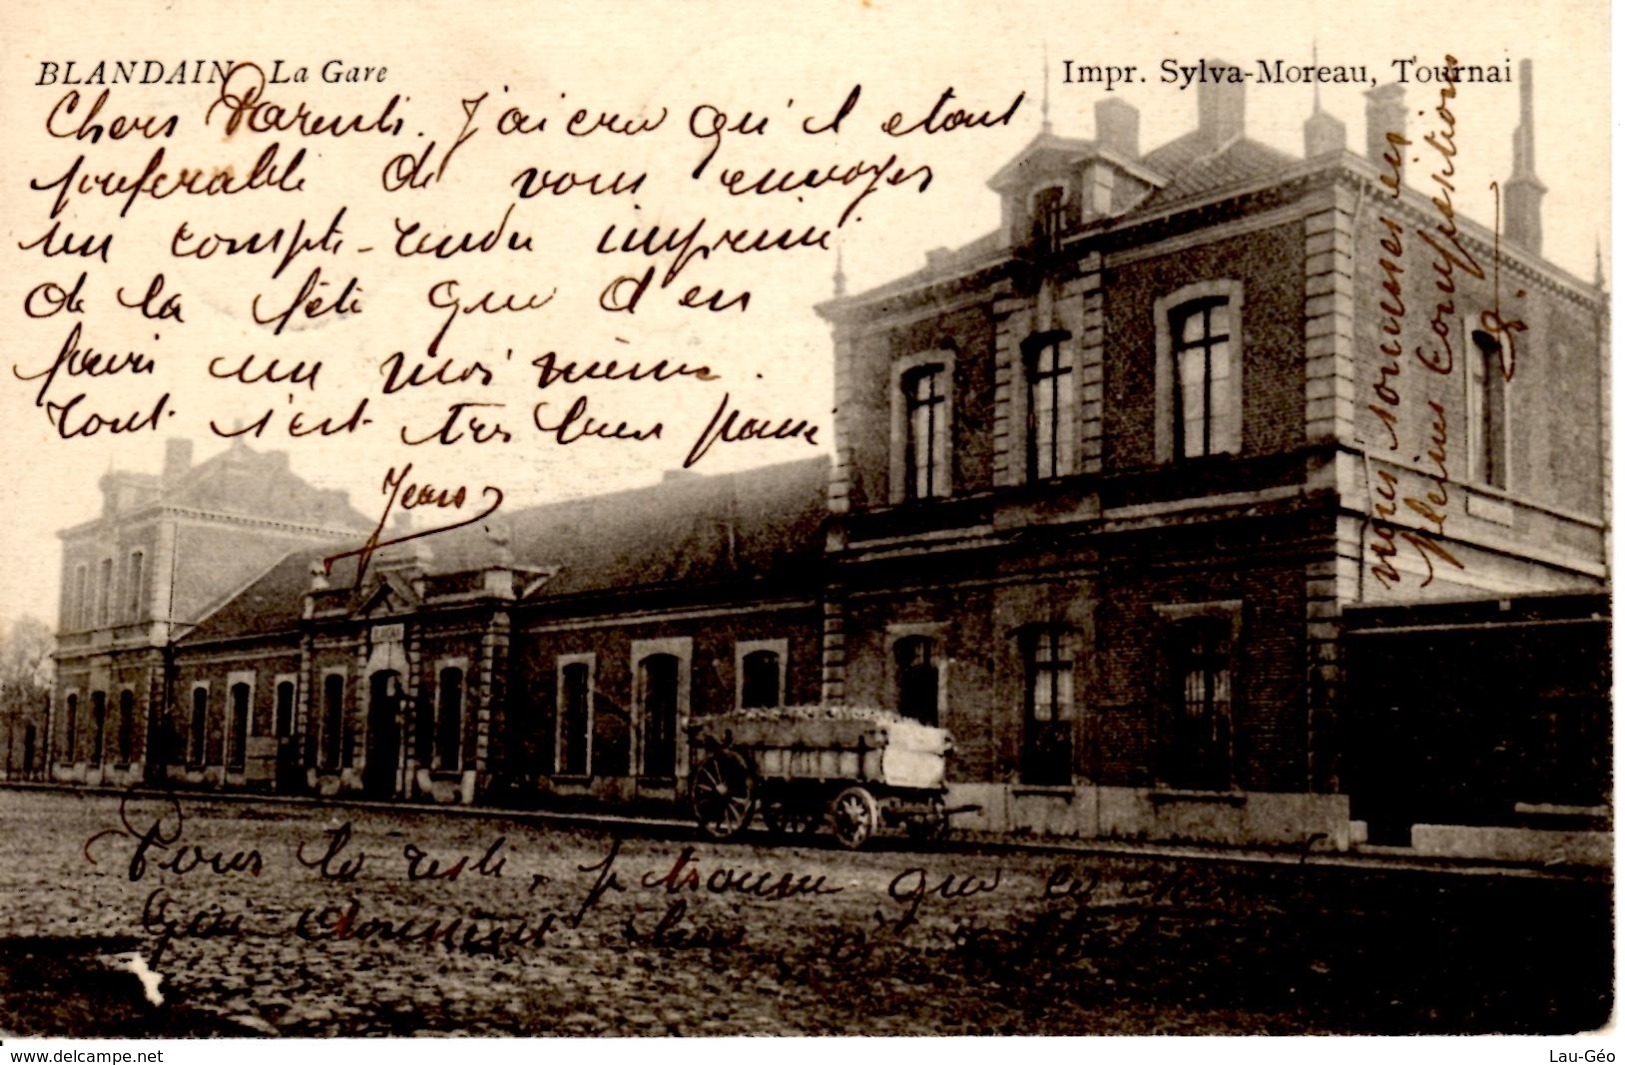 BLANDAIN La Gare
Impr. Sylva-Moreau, Tournai
Chers Parents. J'ai cru qu'il etait
preferable de vous envoyer
un compte-rendu imprimé
de la fête que d'en
faire un moi même.
Tout s'est très bien passé
Jean
nous sommes en
pleines compositions
Pour le reste, je trouve que ce
qui
www.delcampe.net
Lau-Géo